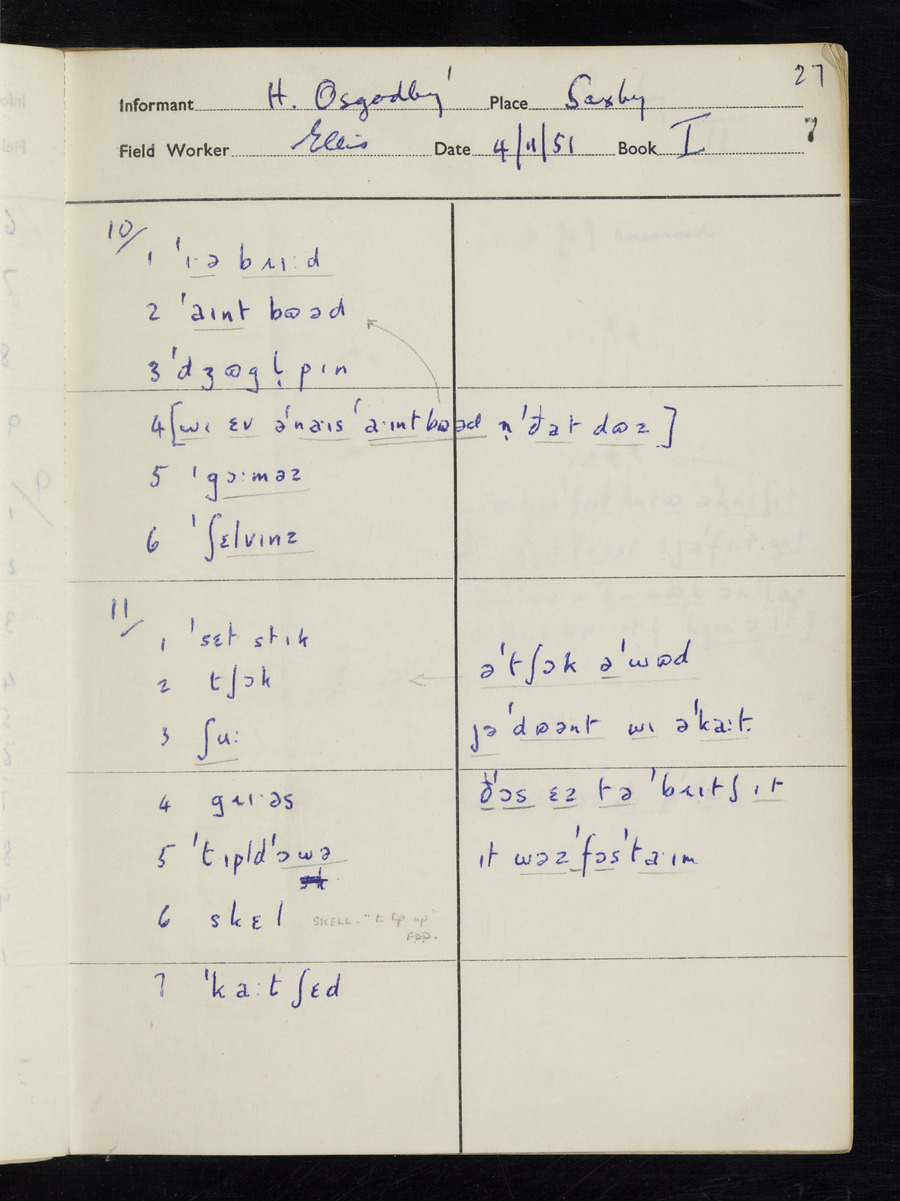 27
Informant H. Osgodby Place Saxby
Field Worker Ellis Date 4/11/51 Book I 7
10/
1 ˈɪ·ə bɹɪːd
2 ˈaɪnt bʊəd
3 ˈdʒʊgl̩ pɪn
4 [wɪ ɛv əˈnaɪs ˈaːɪnt bʊəd n̩ ˈðat dʊz]
5 ˈgɔːməz
6 ˈʃɛlvɪnz
11/
1 ˈsɛt stɪk
2 tʃɔk əˈtʃɔk əˈwʊd
3 ʃuː jəˈdʊənt wɪ əˈkaːt.
4 gɹɪ·əs ðˈɔs ɛz tə ˈbɹɪtʃ ɪt
5 ˈtɪpldˈɔwə ɪt wəzˈfɔsˈtaːɪm
6 skɛl SKELL. "to tip up"
7 ˈkaːtʃɛd